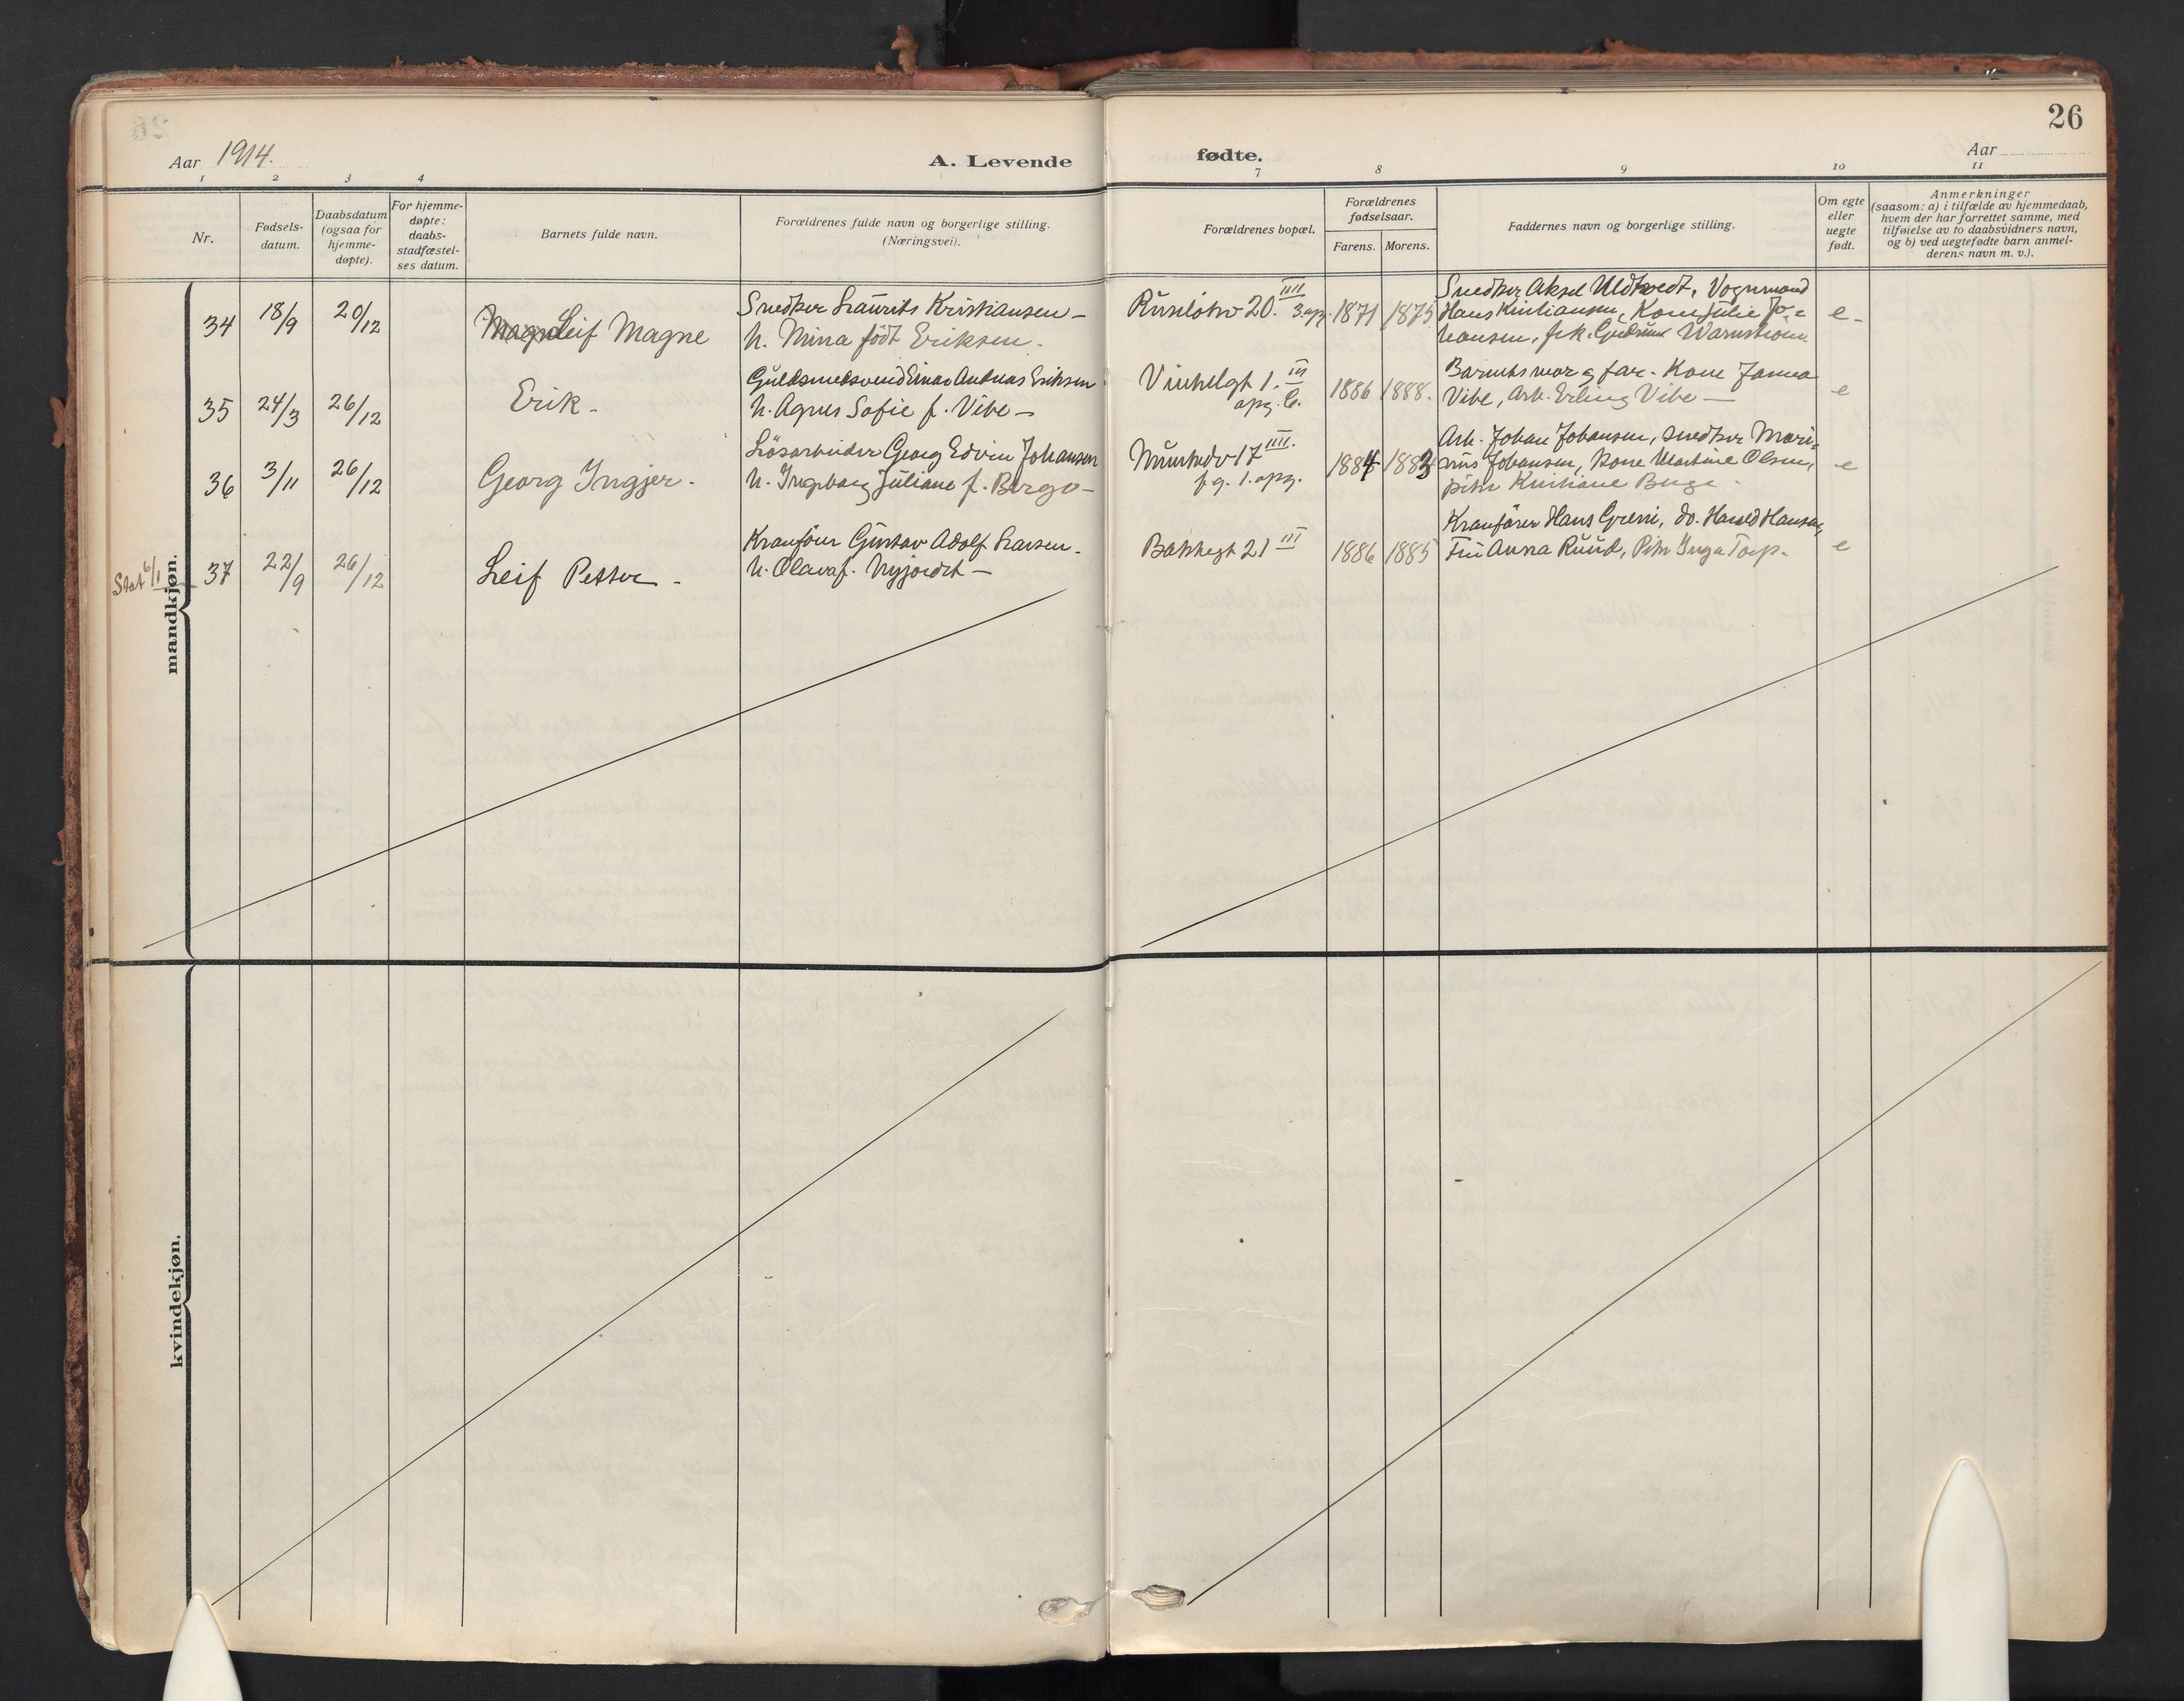 26
Aar 1914.
A. Levende
fødte.
Aar
1 2 3 4
7 8 9 10 11
Nr.
Fødsels-
datum.
Daabsdatum
(ogsaa for
hjemme-
døpte).
For hjemme-
døpte:
daabs-
stadfæstel-
ses datum.
Barnets fulde navn.
Forældrenes fulde navn og borgerlige stilling.
(Næringsvei).
Forældrenes bopæl.
Forældrenes
fødselsaar.
Farens. Morens.
Faddernes navn og borgerlige stilling.
Om egte
eller
uegte
født.
Anmerkninger
(saasom: a) i tilfælde av hjemmedaab,
hvem der har forrettet samme, med
tilføielse av to daabsvidners navn,
og b) ved uegtefødte barn anmel-
derens navn m. v.).
mandkjøn.
34 18/9 20/12 Leif Magne
Snedker Laurits Kristiansen -
h. Mina født Eriksen.
20. IIII
3. opg.
1871 1875
Snedker Aksel Uldtvedt, Vognmand
Hans Kristiansen, Kone Julie Jo=
hansen, frk. Gudrun Warnstrøm
e -
35 24/3 26/12 Erik -
Guldsmedsvend Einar Andreas Eriksen
h. Agnes Sofie f. Vibe -
Vinkelgt 1. III
opg. C.
1886 1888.
Barnets mor og far. Kone
Vibe, Arb. Erling Vibe -
e
36 3/11 26/12 Georg Ingjer.
Løsarbeider Georg Edvin Johansen
h. Ingeborg Juliane f. Berge -
17 IIII.
1. opg.
1884 1883
Arb. Johan Johansen, snedker Mari=
nus Johansen, Kone Martine Olsen,
pike Kristiane Berge -
e
Stat 6/1 37 22/9 26/12 Leif Petter -
Kranfører Gustav Adolf Larsen -
h. Olava f. Nyjordet -
Bakkegt 21 III
1886 1885
Kranfører Hans Greni, do. Harald Hansen,
Fru Anna Ruud, Pike Inga Torp.
e
kvindekjøn.